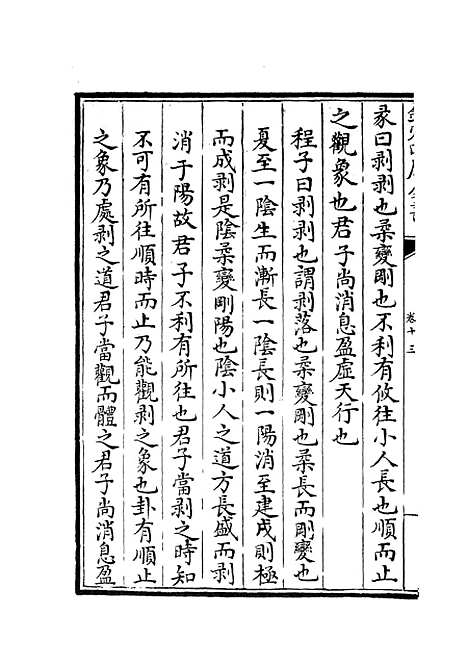 彖曰剥剥也柔變剛也不利有攸往小人長也順而止
之觀象也君子尚消息盈虛天行也
程子曰剥剥也謂剥落也柔變剛也柔長而剛變也
夏至一陰生而漸長一陰長則一陽消至建戌則極
而成剥是陰柔變剛陽也陰小人之道方長盛而剥
消于陽故君子不利有所往也君子當剥之時知
不可有所往順時而止乃能觀剥之象也卦有順止
之象乃處剥之道君子當觀而體之君子尚消息盈
卷十三